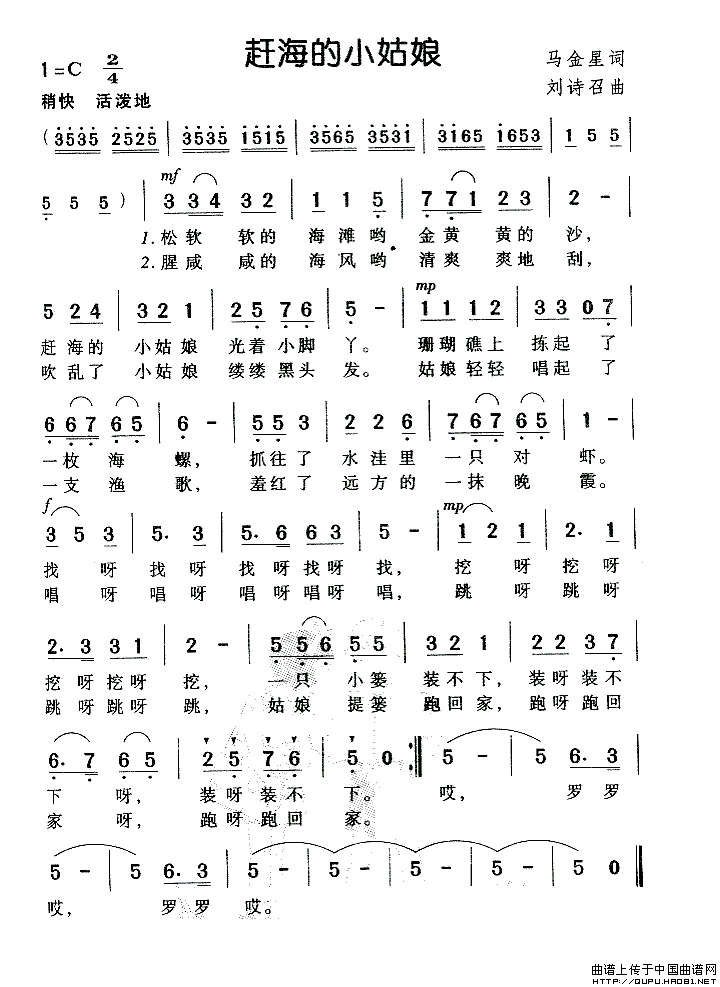 赶海的小姑娘
1=C 2/4
马金星词
刘诗召曲
稍快 活泼地
(3535 2525 | 3535 1515 | 3565 3531 | 3165 1653 | 1 5 5 |
mf
5 5 5) | 334 32 | 1 1 5 | 771 23 | 2 - |
1.松软 软的 海滩哟, 金黄 黄的 沙,
2.腥咸 咸的 海风哟, 清爽 爽地 刮,
mp
5 24 | 321 | 25 76 | 5 - | 11 12 | 33 07 |
赶 海的 小姑娘 光着小脚 丫。 珊瑚礁上 拣起了
吹 乱了 小姑娘 缕缕黑头 发。 姑娘轻轻 唱起了
667 65 | 6 - | 55 3 | 22 6 | 767 65 | 1 - |
一枚 海 螺, 抓住了 水洼里 一只 对 虾。
一支 渔 歌, 羞红了 远方的 一抹 晚 霞。
f mp
3 5 3 | 5. 3 | 5. 6 63 | 5 - | 1 2 1 | 2. 1 |
找 呀 找 呀 找 呀找呀 找, 挖 呀 挖呀
唱 呀 唱呀 唱 呀唱呀 唱, 跳 呀 跳呀
2. 3 31 | 2 - | 556 55 | 321 | 22 37 |
挖 呀挖呀 挖, 一只 小篓 装不下, 装呀装不
跳 呀跳呀 跳, 姑娘 提篓 跑回家, 跑呀跑回
6. 7 65 | 25 76 | 5 0 :| 5 - | 5 - | 6. 3 |
下 呀, 装呀装不 下。 哎, 罗罗
家 呀, 跑呀跑回 家。
5 - | 5 6.3 | 5 - | 5 - | 5 - | 5 0 ||
哎, 罗罗 哎。
曲谱上传于中国曲谱网
HTTP://QUPU.HAO81.NET